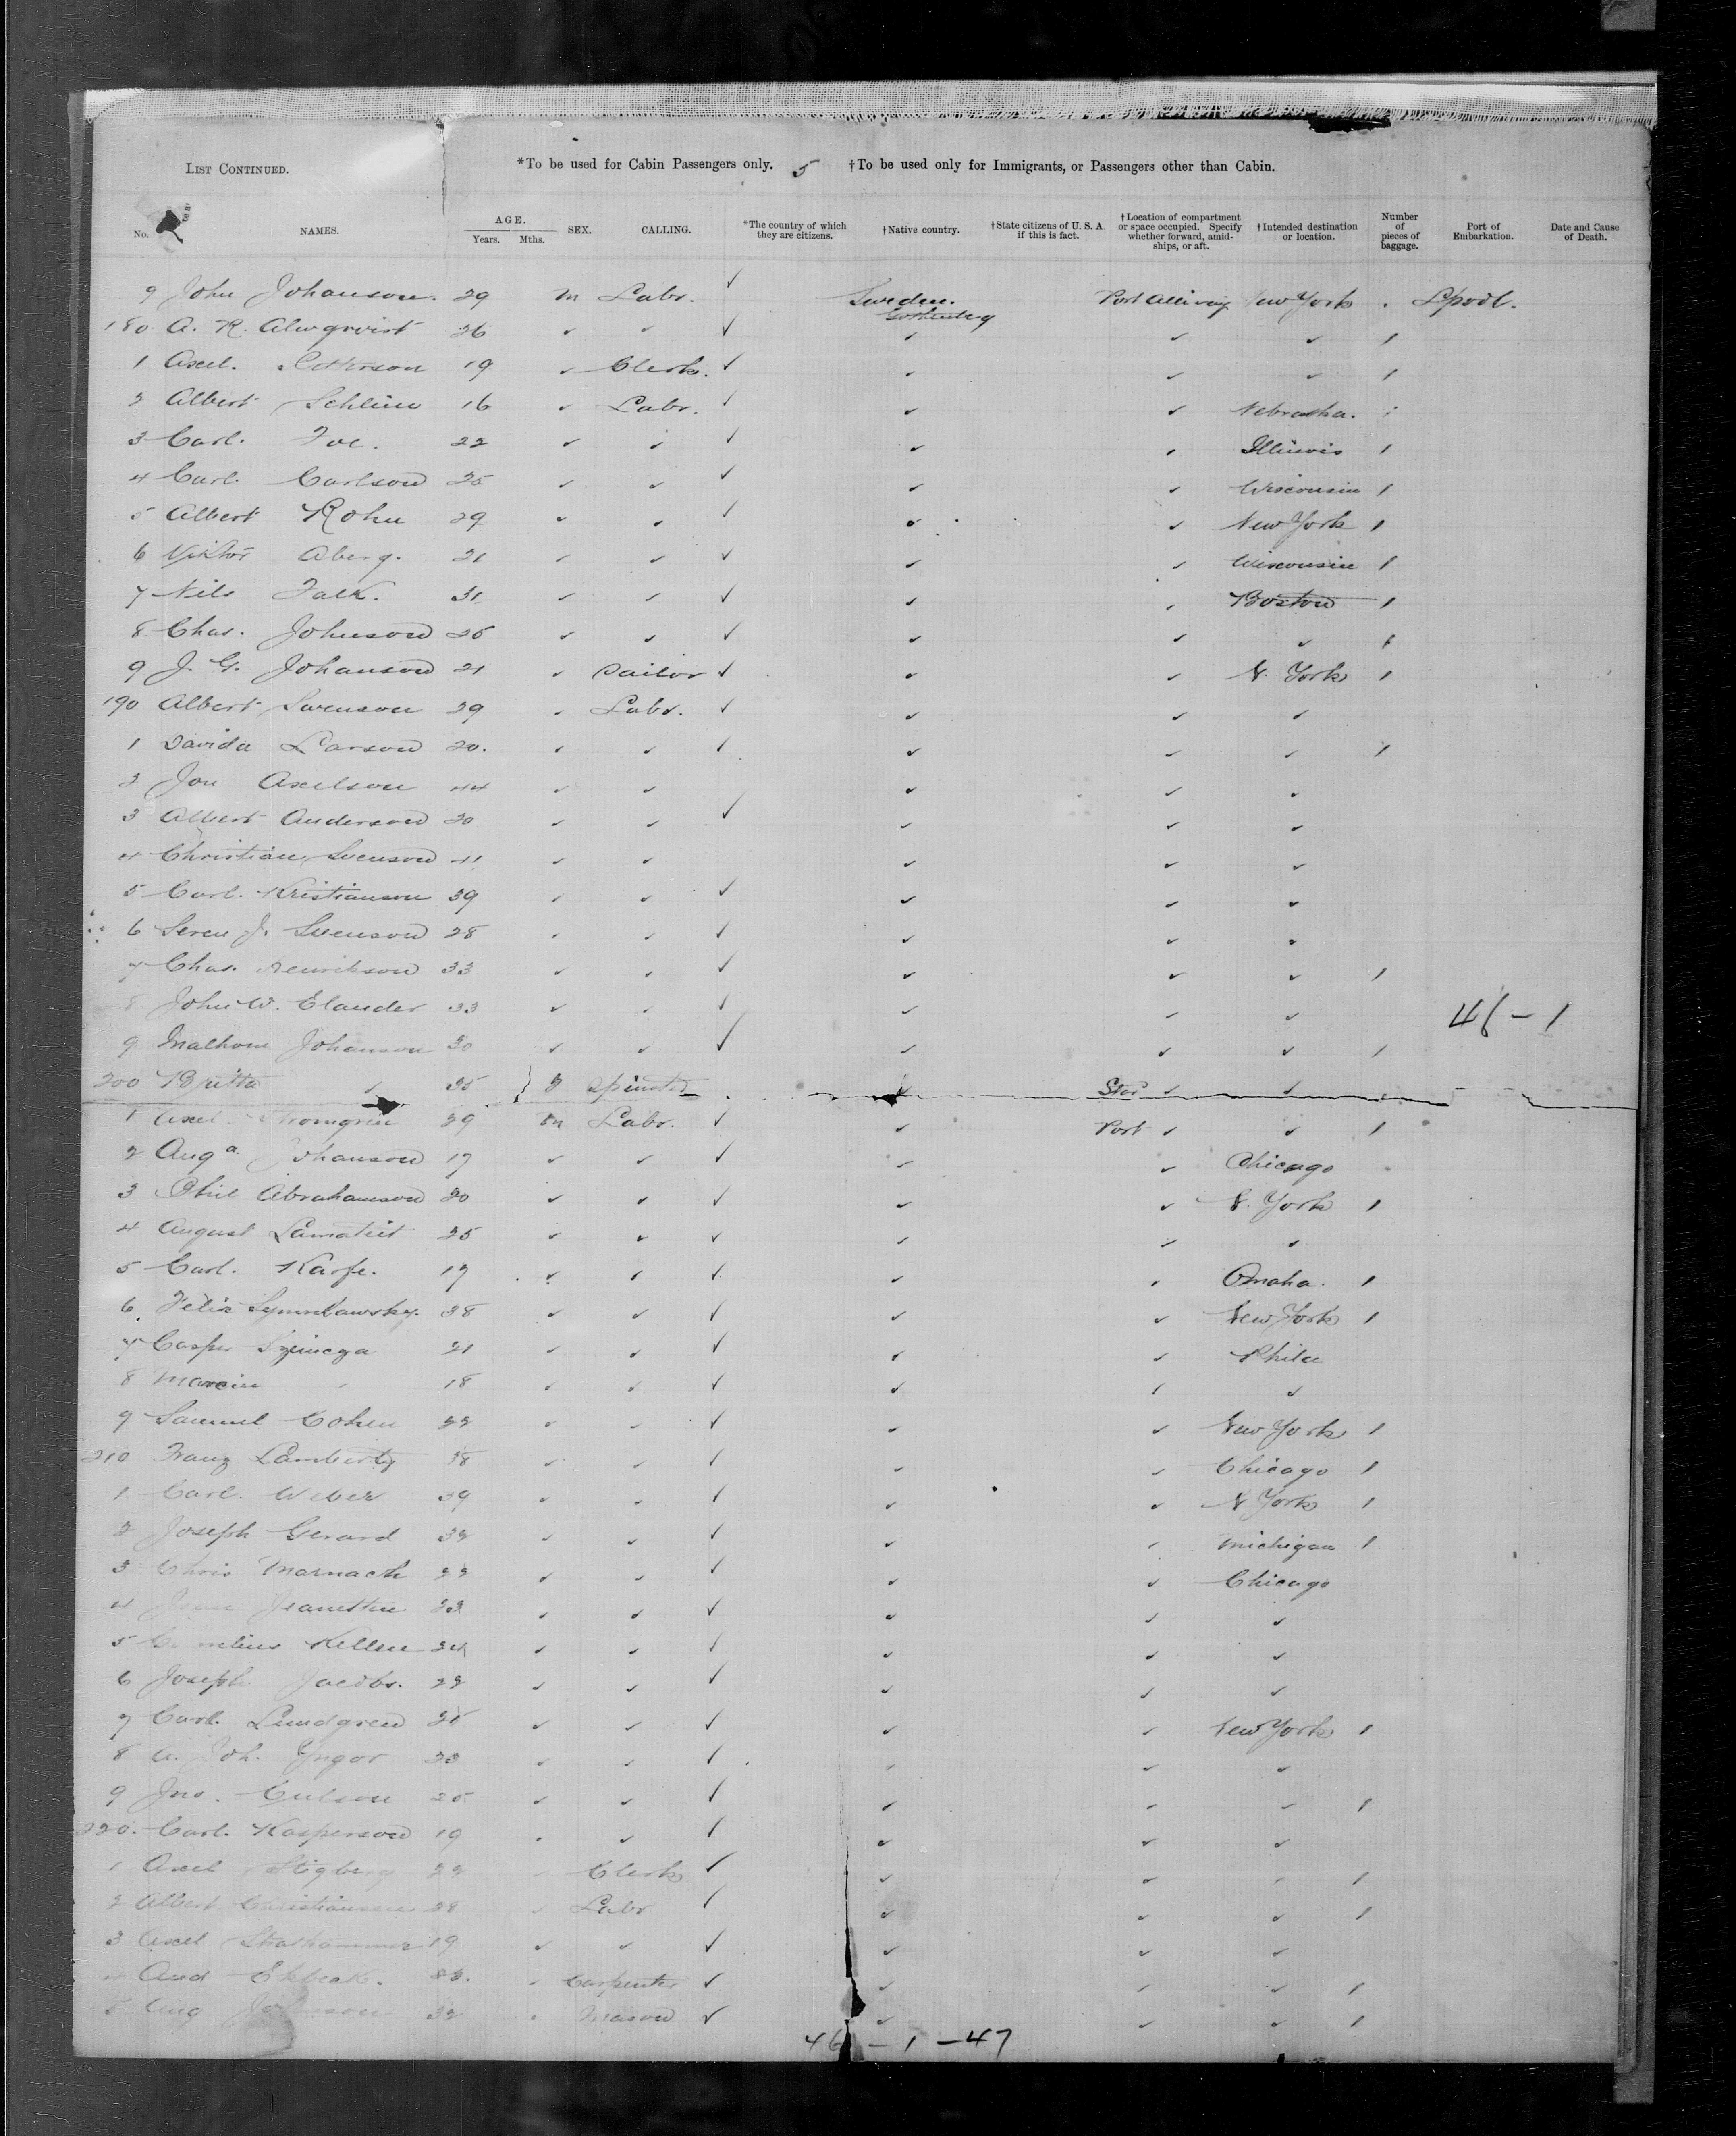 LIST CONTINUED. *To be used for Cabin Passengers only. 5 †To be used only for Immigrants, or Passengers other than Cabin.
No. NAMES. AGE. Years. Mths. SEX. CALLING. *The country of which they are citizens. †Native country. †State citizens of U. S. A. if this is fact. †Location of compartment or space occupied. Specify whether forward, amidships, or aft. †Intended destination or location. Number of pieces of baggage. Port of Embarkation. Date and Cause of Death.
9 John Johanson. 29 M Labr. ✓ Sweden. Port New York Lpool.
180 A. R. Almqvist 26 ✓ ✓ ✓ Gothenburg ✓ ✓ ✓ 1
1 Axel. Petterson 19 ✓ Clerk. ✓ ✓ ✓ ✓ 1
2 Albert 16 ✓ Labr. ✓ ✓ ✓ Nebraska.
3 Carl. 22 ✓ ✓ ✓ ✓ ✓ Illinois 1
4 Carl. Carlson 25 ✓ ✓ ✓ ✓ ✓ Wisconsin 1
5 Albert Rohn 29 ✓ ✓ ✓ ✓ ✓ New York 1
6 Viktor Aberg. 21 ✓ ✓ ✓ ✓ ✓ Wisconsin 1
7 Nils Falk. 31 ✓ ✓ ✓ ✓ ✓ Boston 1
8 Chas. Johnson 25 ✓ ✓ ✓ ✓ ✓ ✓ 1
9 J. G. Johanson 21 ✓ Sailor ✓ ✓ ✓ N. York 1
190 Albert Swenson 29 ✓ Labr. ✓ ✓ ✓ ✓
1 Davida Larson 20. ✓ ✓ ✓ ✓ ✓ ✓ 1
2 Jon Axelson 44 ✓ ✓ ✓ ✓ ✓
3 Albert Anderson 20 ✓ ✓ ✓ ✓ ✓ ✓
4 Christian Svenson 41 ✓ ✓ ✓ ✓ ✓
5 Carl. Kristianson 39 ✓ ✓ ✓ ✓ ✓ ✓
6 Seren J. Svenson 28 ✓ ✓ ✓ ✓ ✓ ✓
7 Chas. Henrikson 33 ✓ ✓ ✓ ✓ ✓ ✓ 1
8 John W. Elander 33 ✓ ✓ ✓ ✓ ✓ ✓
46 – 1
9 Johanson 30 ✓ ✓ ✓ ✓ ✓ ✓ 1
200 Britta 25 Spinster ✓ ✓ ✓
1 Axel Stromgren 29 M Labr. ✓ ✓ Port ✓ ✓ 1
2 Auga Johanson 17 ✓ ✓ ✓ ✓ ✓ Chicago
3 Phil Abrahamson 20 ✓ ✓ ✓ ✓ ✓ N. York 1
4 August 25 ✓ ✓ ✓ ✓ ✓ ✓
5 Carl. Karfe. 17 ✓ ✓ ✓ ✓ ✓ Omaha. 1
6 Felix 38 ✓ ✓ ✓ ✓ ✓ New York 1
7 Casper 21 ✓ ✓ ✓ ✓ ✓ Phila
8 Marcin 18 ✓ ✓ ✓ ✓ ✓ ✓
9 Samuel Cohen 22 ✓ ✓ ✓ ✓ ✓ New York 1
210 Franz Lamberty 38 ✓ ✓ ✓ ✓ ✓ Chicago 1
1 Carl. Weber 39 ✓ ✓ ✓ ✓ ✓ N York 1
2 Joseph Gerard 32 ✓ ✓ ✓ ✓ ✓ Michigan 1
3 Chris Marnach 22 ✓ ✓ ✓ ✓ ✓ Chicago
4 23 ✓ ✓ ✓ ✓ ✓ ✓
5 Killen 24 ✓ ✓ ✓ ✓ ✓ ✓
6 Joseph Jacobs. 22 ✓ ✓ ✓ ✓ ✓ ✓
7 Carl. Lundgren 25 ✓ ✓ ✓ ✓ ✓ New York 1
8 Joh. Yngor 23 ✓ ✓ ✓ ✓ ✓ ✓
9 Jno. 25 ✓ ✓ ✓ ✓ ✓ ✓ 1
220. Carl. Kasperson 19 ✓ ✓ ✓ ✓ ✓ ✓
1 Axel Stigberg 22 ✓ Clerk ✓ ✓ ✓ ✓ 1
2 Albert Christiansen 28 ✓ Labr ✓ ✓ ✓ ✓ 1
3 Axel 19 ✓ ✓ ✓ ✓ ✓ ✓
4 And 23. ✓ Carpenter ✓ ✓ ✓ ✓ 1
5 Aug Johnson 32 ✓ Mason ✓ ✓ ✓ ✓ 1
46 – 1 – 47